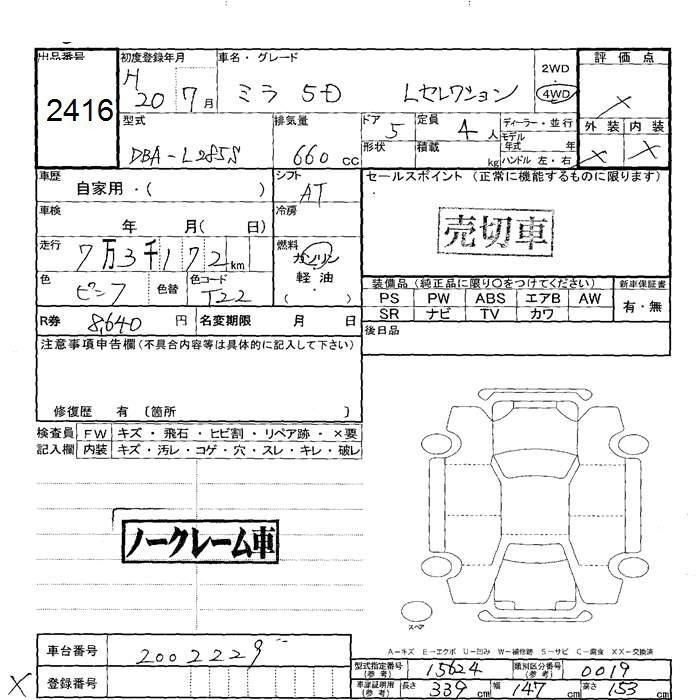 出品番号
2416
初度登録年月
H 20 7月
車名・グレード
ミラ 5D Lセレクション
2WD
4WD
評価点
×
外装 内装
× ×
型式
DBA-L285S
排気量
660 cc
ドア 5
形状
定員 4人
積載 kg
ディーラー・並行
モデル年式 年
ハンドル 左・右
車歴
自家用・( )
シフト
AT
セールスポイント (正常に機能するものに限ります)
売切車
車検
年 月( 日)
冷房
走行
7万3千172km
燃料
ガソリン
軽油
( ・ )
色
ピンク
色替
色コード
T22
装備品 (純正品に限り〇をつけてください)
新車保証書
PS PW ABS エアB AW
SR ナビ TV カワ
有・無
R券 8,640円
名変期限 月 日
後日品
注意事項申告欄(不具合内容等は具体的に記入して下さい)
修復歴 有 〔箇所 〕
検査員 FW キズ・飛石・ヒビ割・リペア跡・×要
記入欄 内装 キズ・汚レ・コゲ・穴・スレ・キレ・破レ
ノークレーム車
スペア
A-キズ E-エクボ U-凹み W-補修跡 S-サビ C-腐食 XX-交換済
車台番号 2002229
型式指定番号(参考) 15624
類別区分番号(参考) 0019
× 登録番号
車庫証明用(参考) 長さ 339cm 幅 147cm 高さ 153cm